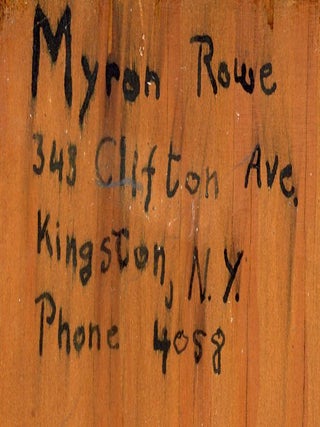 Myron Rowe
348 Clifton Ave.
Kingston, N.Y.
Phone 4058